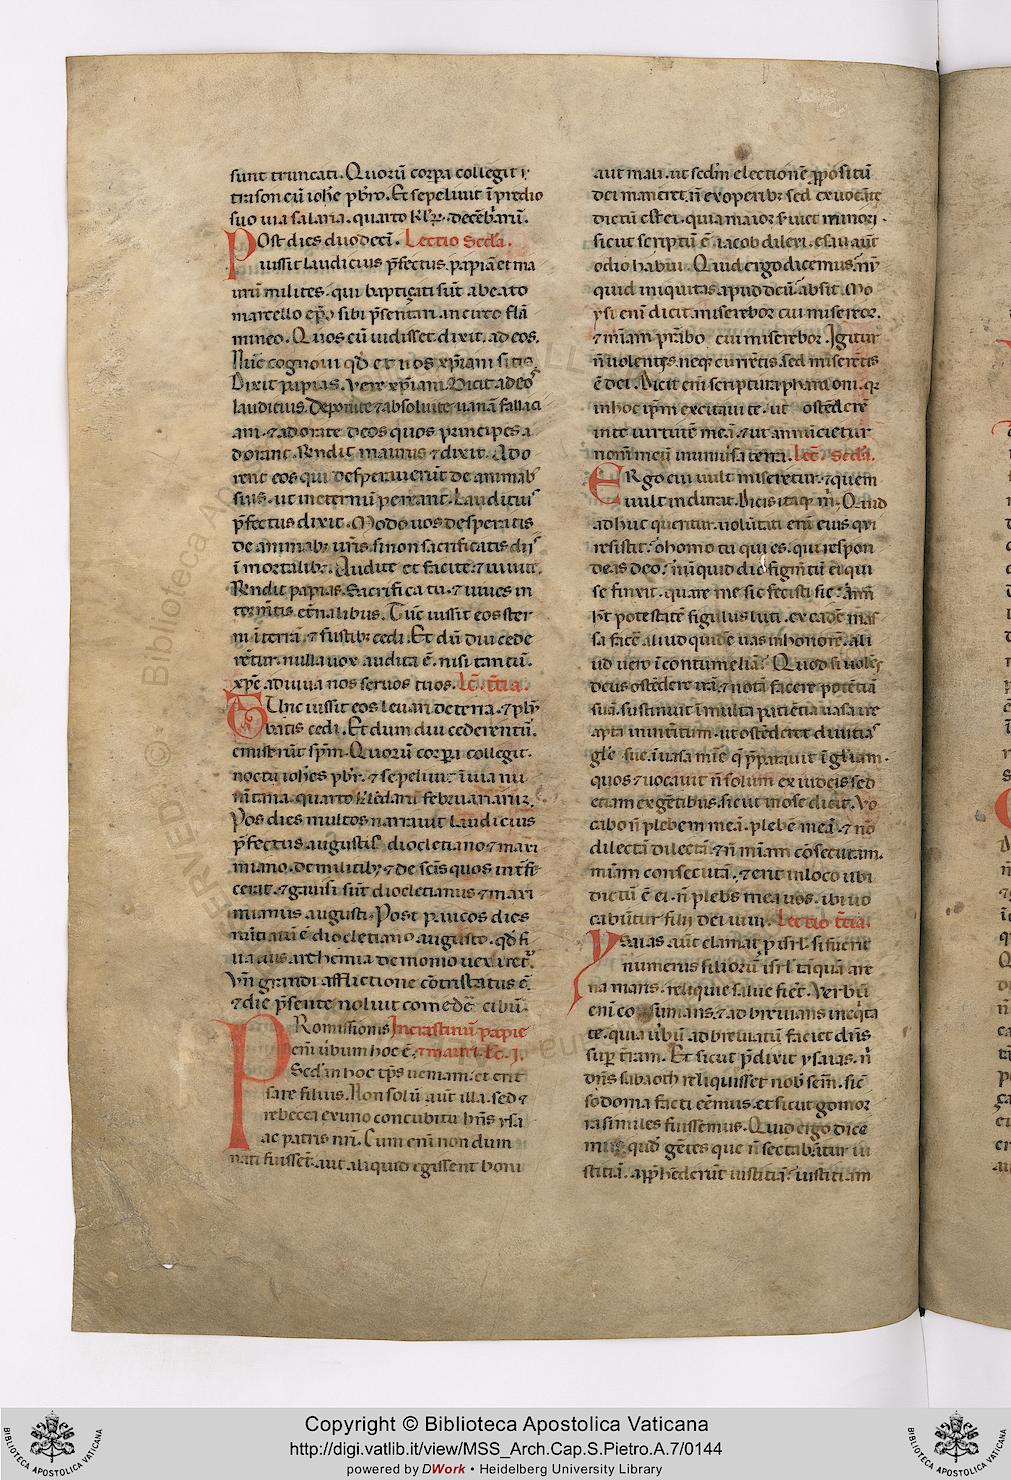 sunt truncati. Quorū corpa collegit i
trason cū ioh̄e pb̄ro. Et sepeliuit ī predio
suo uia salaria. quarto kl̄r. decēbriū.
POst dies duodeci. Lectio Scd̄a.
iussit laudicius p̄fectus. papiā et ma
urū milites. qui baptiçati sūt a beato
marcello ep̄o sibi p̄sentari. in circo flā
mineo. Quos cū uidisset. dixit. ad eos.
Nūc cognoui qd̄ et uos xp̄iani sitis.
Dixit papias. Vere xp̄iani. Dicit ad eos
laudicius. Deponite ⁊ absoluite uanā fallaci
am. ⁊ adorate deos quos principes a
dorant. Rendit maurus ⁊ dixit. Ado
rent eos qui desperauerūt de animabꝰ
suis. ut in eternū pereant. Laudiciuꝰ
p̄fectus dixit. Modo uos desperatis
de animabꝫ ur̄is. si non sacrificatis diiꝰ
īmortalibꝫ. Audite et facite. ⁊ uiuite.
Rendit papias. Sacrifica tu. ⁊ uiues in
tormētis et̄nalibus. Tūc iussit eos ster
ni ī terrā. ⁊ fustibꝫ cedi. Et dū diu cede
rētur. nulla uox audita ē. nisi tantū.
xp̄e. adiuua nos seruos tuos. Lc̄. t̄tia.
TUnc iussit eos leuari de terra. ⁊ plū
batis cedi. Et dum diu cederentur.
emiserūt sp̄m. Quorū corpa collegit.
noctu ioh̄es pbr̄. ⁊ sepeliuit ī uia nu
mētana. quarto kalēdaru februariarū.
Pos dies multos narrauit laudicius
p̄fectus augustis. diocletiano. ⁊ maxi
miano. de militibꝫ ⁊ de sc̄is quos int̄fe
cerat. ⁊ gauisi sūt diocletianus ⁊ maxi
mianus augusti. Post paucos dies
nūtiatū ē diocletiano augusto. qd̄ fi
lia eius arthemia demonio uexaret̄.
Vn̄ grandi afflictione cōtristatus ē.
⁊ die p̄sente noluit comedē cibū.
PRomissionis In crastinū papie
enī ūbum hoc ē. ⁊ mauri. Lc̄. I.
Scd̄m hoc tp̄s ueniam. et erit
sare filius. Non solū aūt illa. sed ⁊
rebecca ex uno concubitu hn̄s ysa
ac patris nr̄i. Cum enī nondum
nati fuissēt. aut aliquid egissent boni
aut mali. ut scd̄m electionē p̄positū
dei maneret. n̄ ex operibꝫ sed ex uocāte
dictū est ei. quia maior seruiet minori.
sicut scriptū ē. iacob dilexi. esau aūt
odio habui. Quid ergo dicemus. nū
quid iniquitas apud deū. absit. Mo
ysi eni dicit. miserebor cui misereor.
⁊ mīam pr̄ibo cui miserebor. Igitur
n̄ uolentis. neqꝫ currētis. sed miserētis
ē dei. Dicit enī scriptura pharaoni. qꝛ
in hoc ip̄m excitaui te. ut ostēderē
in te uirtutē meā. ⁊ ut annūcietur
nom̄ meū in uniuersa terra. Lec̄. Scd̄a.
ERgo cui uult miseretur. ⁊ quem
uult indurat. Dicis itaqꝫ m̄. Quid
adhuc queritur. uolūtati enī eius qui
resistit? o homo tu quis es. qui respon
deas deo? nūquid dic̄ figm̄tū ei qui
se finxit. quare me sic fecisti sic? An n̄
h̄t potestatē figulus luti. ex eadē mas
sa facē aliud quidē uas in honorē. ali
ud uero ī contumeliā? Quod si uolēs
deus ostēdere irā. ⁊ notā facere potētiā
suā. sustinuit ī multa patiētia uasa ire
apta in interitum. ut ostēderet diuitias
gl̄e sue. ī uasa mīe q̄ p̄parauit ī gl̄iam.
quos ⁊ uocauit n̄ solum ex iudeis sed
etiam ex gētibus. sicut in ose dicit. Vo
cabo n̄ plebem meā. plebē meā. ⁊ nō
dilectū dilectā. ⁊ n̄ mīam cōsecutam.
mīam consecutā. ⁊ erit in loco ubi
dictū ē ei. n̄ plebs mea uos. ibi uo
cabūtur filii dei uiui. Lectio t̄tia.
YSaias aūt clamat p̄ isrl̄. si fuerit
numerus filiorū isrl̄ tāquā are
na maris. reliquie salue fiēt. Verbū
enī cōsumans. ⁊ adbreuians in eq̄ta
te. quia ūbū adbreuiatū faciet dn̄s
suꝑ t̄ram. Et sicut p̄dixit ysaias. n̄
dn̄s sabaoth reliquisset nob̄ sem̄. sic̄
sodoma facti eēmus. et sicut gomor
ra similes fuissemus. Quid ergo dice
mus. quod gētes que n̄ sectabātur iu
stitiā. app̄hēderūt iustitiā? iustitiam
Copyright © Biblioteca Apostolica Vaticana
http://digi.vatlib.it/view/MSS_Arch.Cap.S.Pietro.A.7/0144
powered by DWork • Heidelberg University Library
BIBLIOTECA APOSTOLICA VATICANA
BIBLIOTECA APOSTOLICA VATICANA